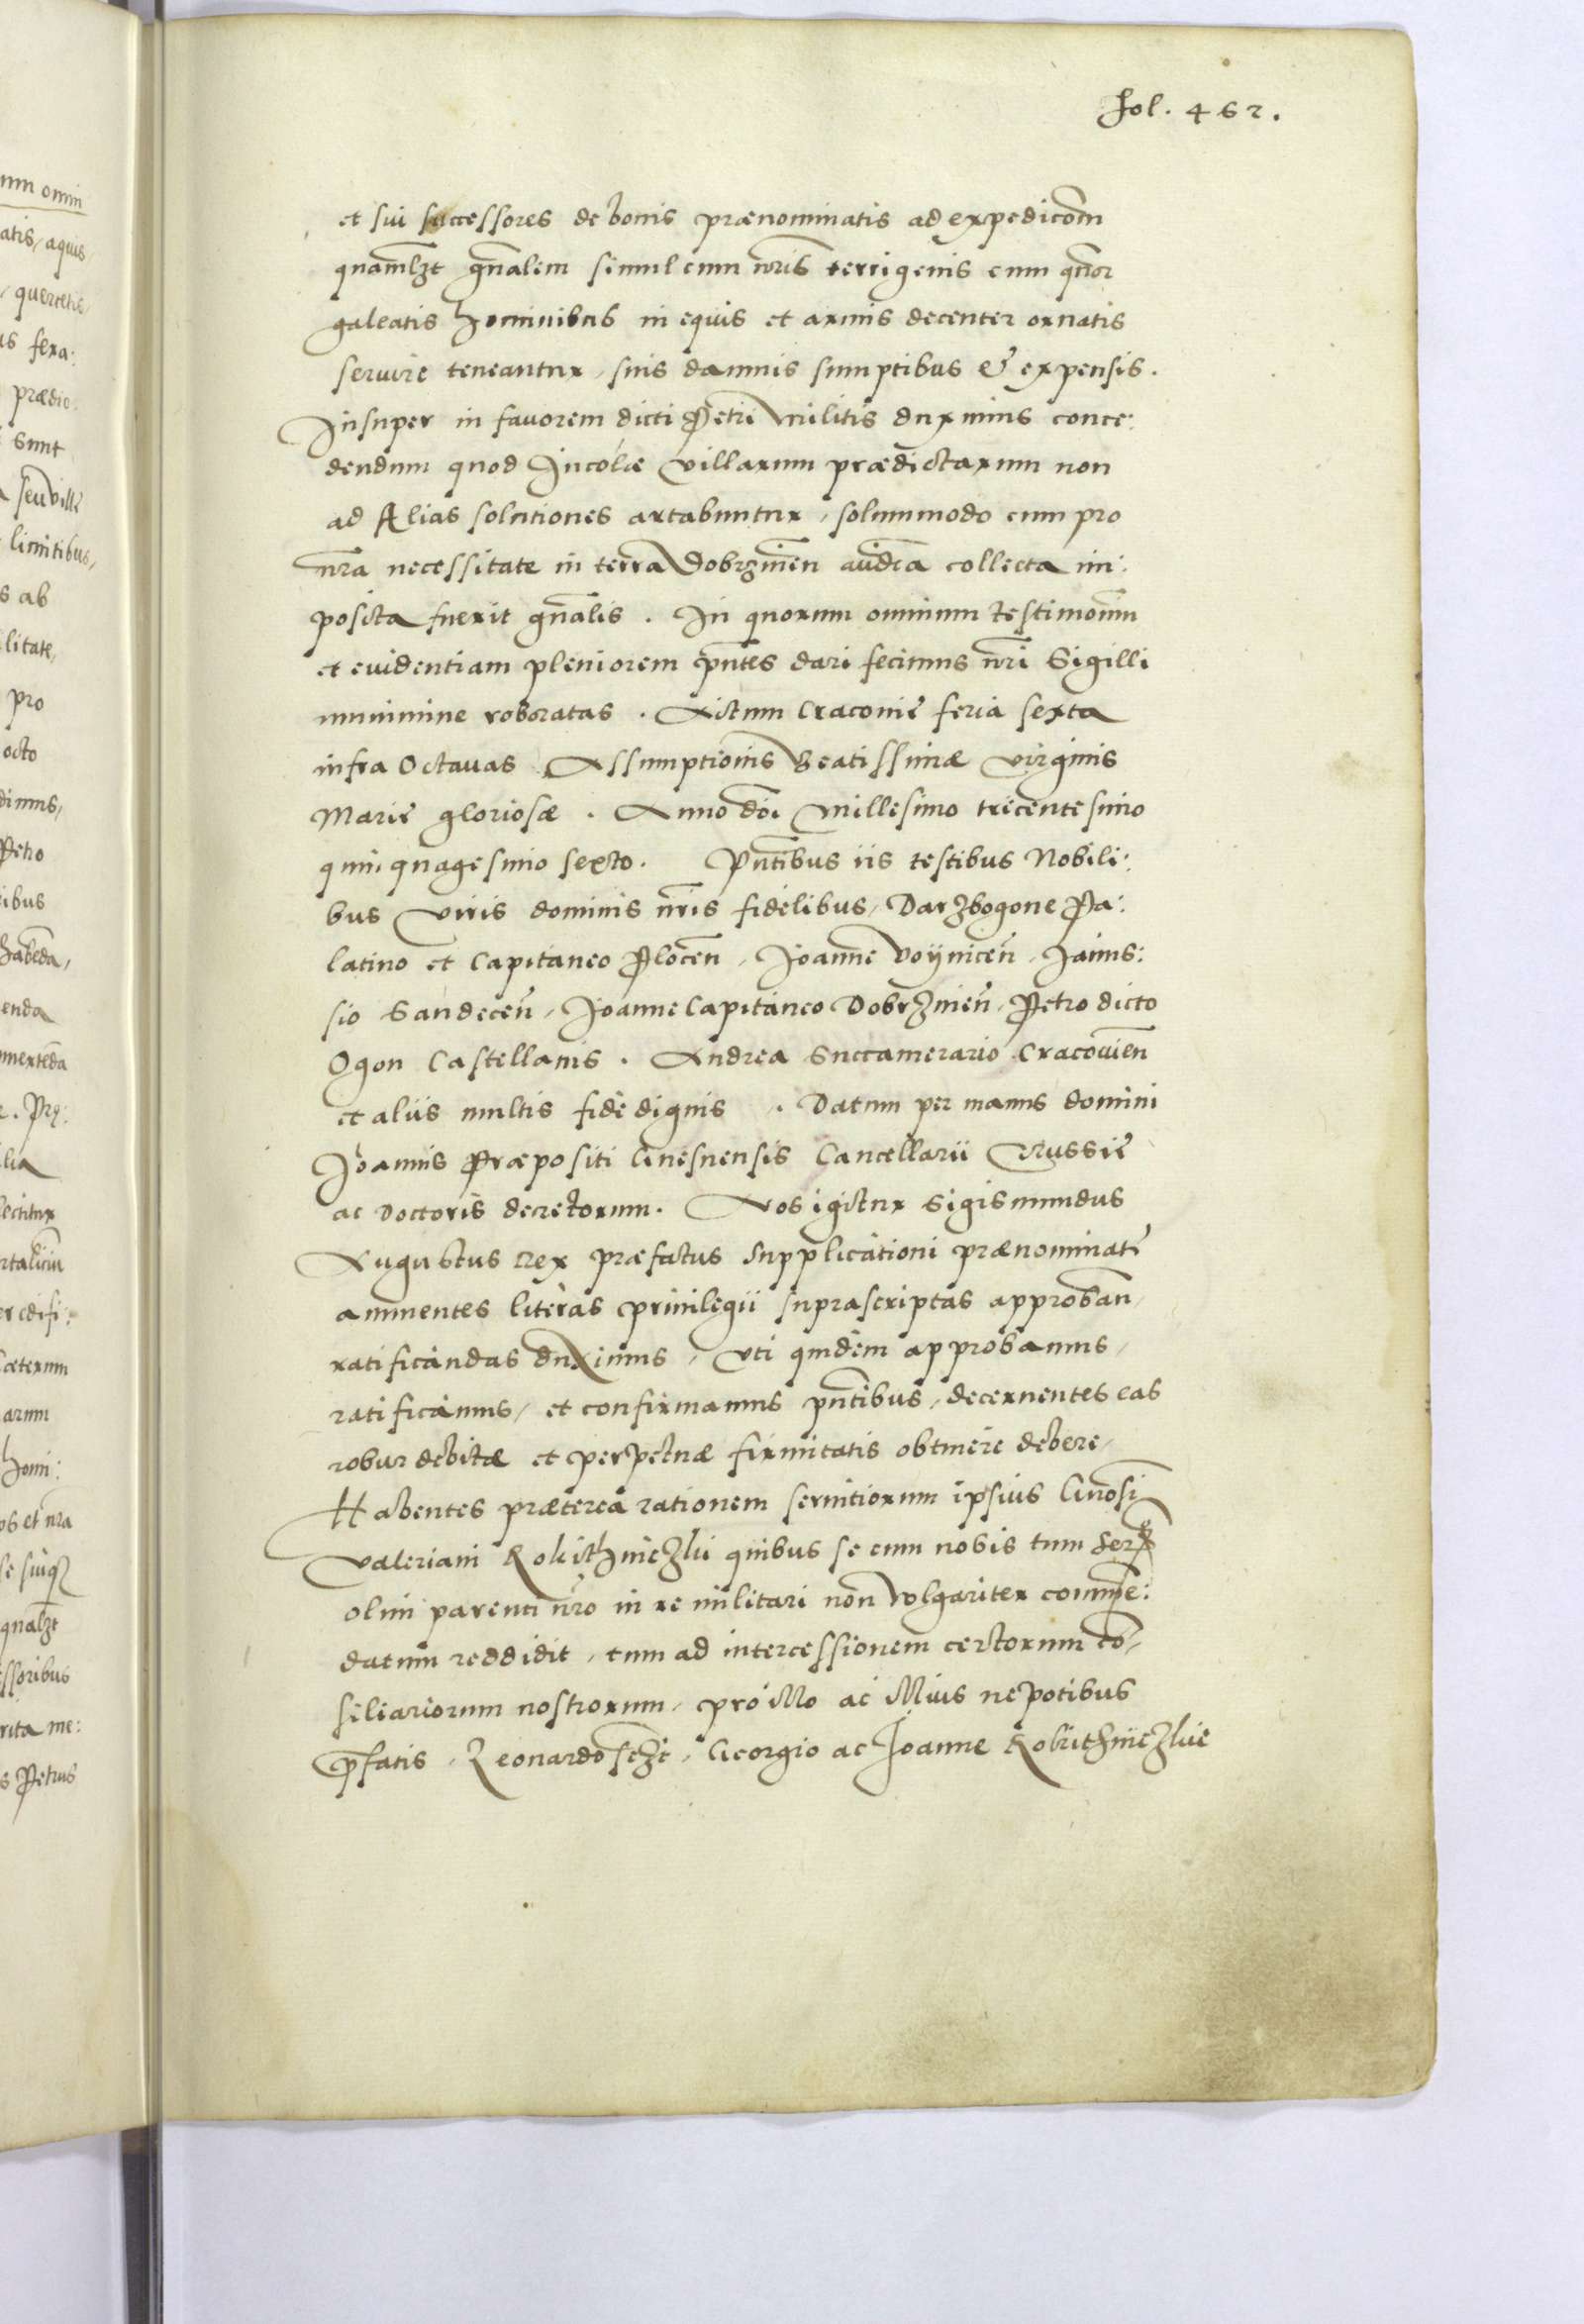 Fol. 462.
et sui successores de bonis prænominatis ad expedicōm
quamlƷt gn̄alem simul cum nr̄is terrigenis cum qn̄or
galeatis hominibus in equis et armis decenter ornatis
seruire teneantur, suis damnis sumptibus & expensis.
Insuper in fauorem dicti Petri militis duximus conce:
dendum quod Incolæ villarum prædictarum non
ad Alias solutiones artabuntur, solummodo cum pro
nr̄a necessitate in terra Dobrzinēn collecta im:
posita fuerit gn̄alis. In quorum omnium testimoniū
et euidentiam pleniorem pn̄tes dari fecimus nr̄i Sigilli
munimine roboratas. Actum Cracouię feria sexta
infra Octauas Assumptionis Beatissimæ virginis
Marię gloriosæ. Anno dōi Millesimo tricentesimo
quinquagesimo sexto. Pn̄tibus iis testibus Nobili:
bus viris dominis nr̄is fidelibus, Darzbogone Pa:
latino et Capitaneo Plocēn, Joanne Voynicēn, Janus:
sio Sandecēn, Joanne Capitaneo Dobrzinēn, Petro dicto
Ogon Castellanis. Andrea Succamerario Cracouiēn
et aliis multis fide dignis. Datum per manus domini
Joannis Præpositi Gnesnensis Cancellarii Russię
ac Doctoris decretorum. Nos igitur Sigismundus
Augustus Rex præfatus supplicationi prænominatę
annuentes literas priuilegii suprascriptas approban,
ratificandas duximus, vti quidem approbamus,
ratificamus, et confirmamus pn̄tibus, decernentes eas
robur debitæ et perpetuæ firmitatis obtinere debere,
Habentes præterea rationem seruitiorum ipsius Gn̄osi
Valeriani Kokithniczki quibus se cum nobis tum
olim parenti nr̄o in re militari non volgariter comme:
datum reddidit, tum ad intercessionem certorum cō,
siliariorum nostrorum, pro illo ac illius nepotibus
p̄fatis, Leonardo sczt, Georgio ac Joanne